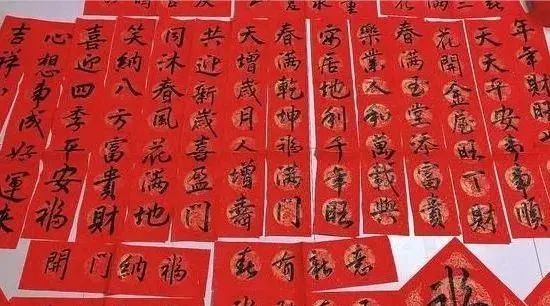 年年財旺
天天平安事事順
花開金屋旺丁財
春滿玉堂添富貴
樂業人和萬載興
安居地利千年旺
春滿乾坤福滿門
天增歲月人增壽
共迎新歲喜盈門
同沐春風花滿地
笑納八方富貴財
喜迎四季平安福
心想事成好運來
吉祥
開門納福
福